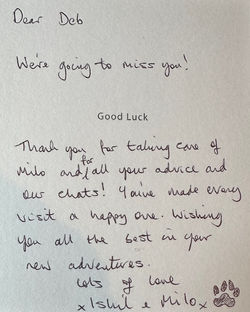 Dear Deb
We're going to miss you!
Good Luck
Thank you for taking care of
Milo and for all your advice and
our chats! You've made every
visit a happy one. Wishing
you all the best in your
new adventures.
Lots of love
x & Milo x